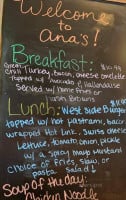 Welcome
to
Ana's!
Breakfast: $10.99
Turkey, bacon, cheese omelette
topped w/ Avocado & Hollandaise
served w/ home fries or
hash browns
Lunch: West side Burger
topped w/ our pastrami, bacon
wrapped Hot link, swiss cheese
Lettuce, tomato, onion, pickle
w/ a spicy mayo mustard
choice of Fries, slaw, or
pasta salad
Soup of the day:
Chicken Noodle